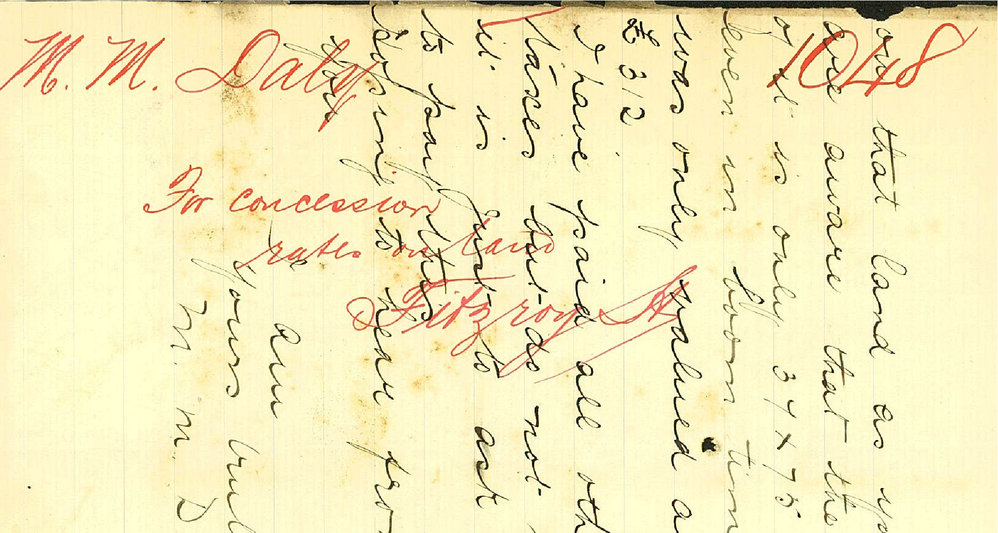 M. M. Daly
1048
For concession
rates on land
Fitzroy St
on that land as yo
are aware that the
of it is only 34 x 75
even in boom tim
was only valued a
£312.
I have paid all oth
taxes but as not
it is just to ask
to pay this
Hoping to hear fro
you
I am
Yours trul
M. M. D